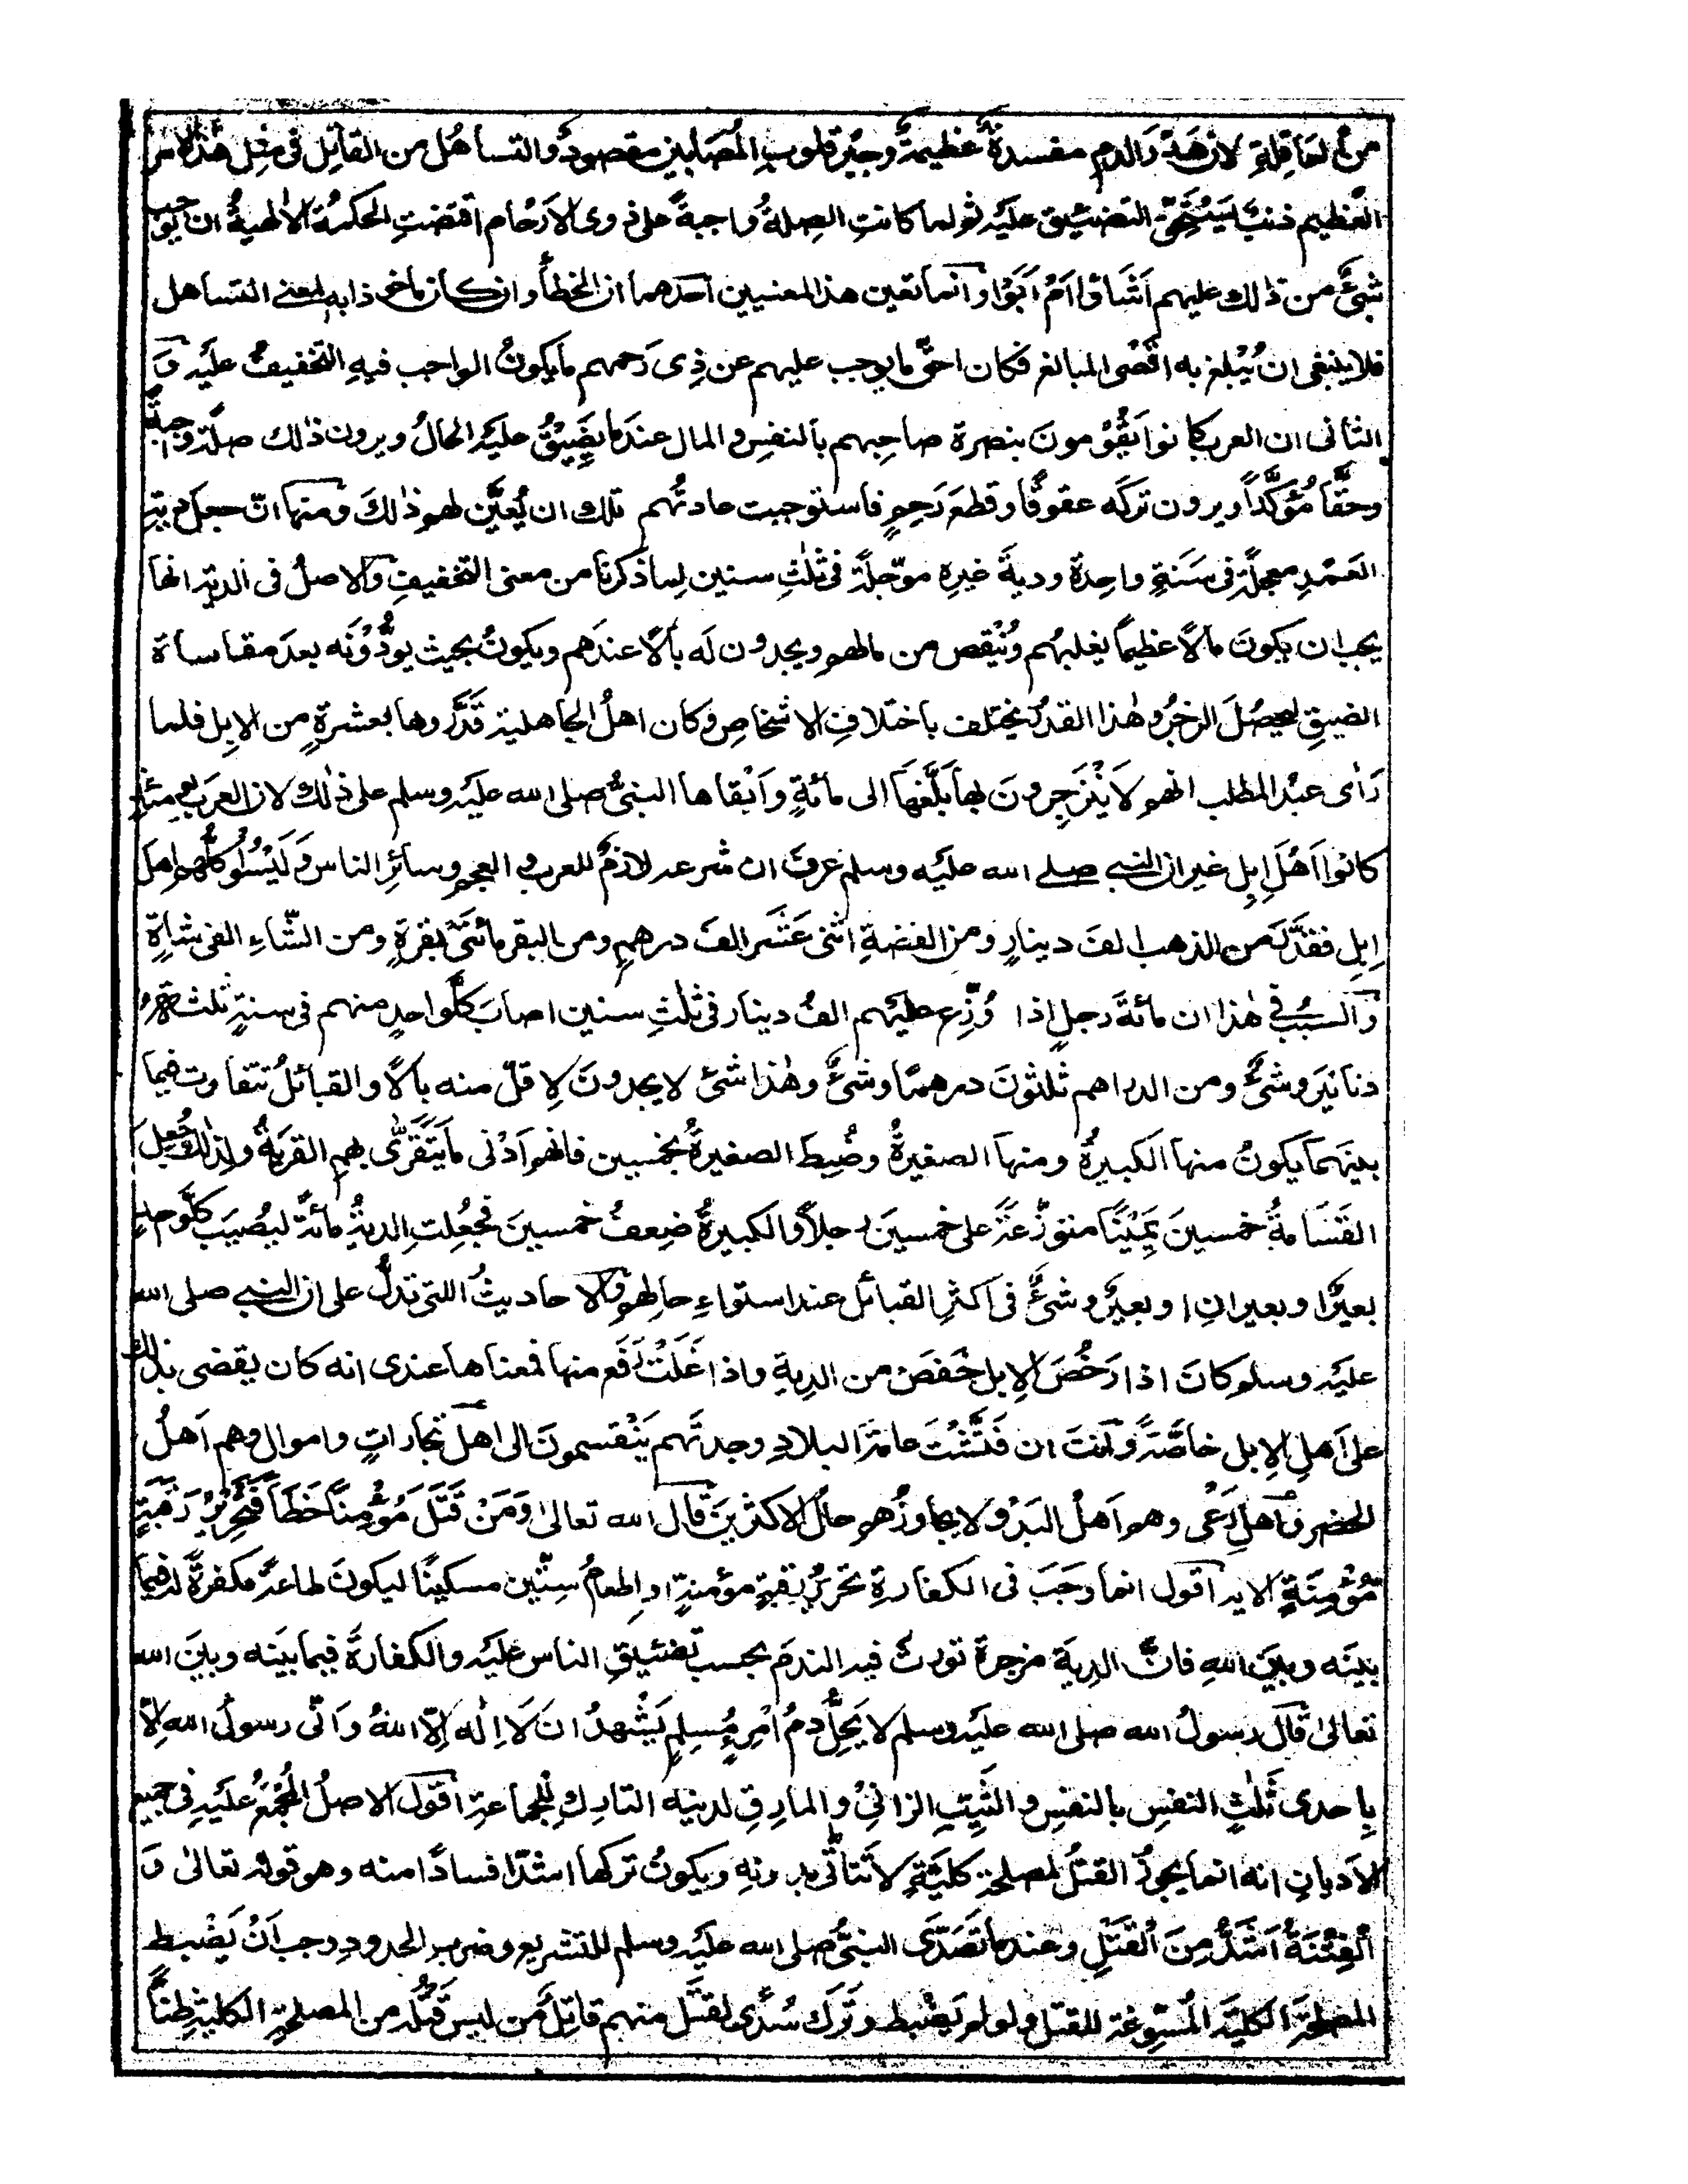 من العاقلةِ لان هَدْرَ الدمِ مفسدةٌ عظيمةٌ وجبْرَ قلوبِ المُصَابين مقصودٌ والتساهُل من القاتِل فى مِثِل هٰذا الامر
العظيمِ ذنبٌ يَستَحِقّ التضئيق عليه ثم لما كانتِ الصِلةُ واجبةً على ذوى الاَرْحام اقتضتِ الحكمةُ الالٰهيةُ ان يوجب
شئٌ من ذٰلك عليهم اَشَاؤا اَمْ اَبَوْا وانما تعين هذا لمعنيين احدهما ان الخطأ وان كان ماخوذا به لمعنى التساهل
فلا ينبغى ان يُبْلغ به اقصَى المبالغ فكان احقّ ما يوجب عليهم عن ذِى رَحمهم ما يكونُ الواجب فيهِ التخفيفُ عليه وَ
الثانى ان العرب كانوا يَقُوْمونَ بنصرة صاحِبهم بالنفسِ والمال عندَما يَضِيْقُ عليه الحالُ ويرون ذٰلك صلةً واجبةً
وحقَّا مُؤكَّداً ويرون تركَه عقوقًا وقطعَ رَحِمٍ فاستوجبت عادتُهم تلك ان يُعيَّن لهم ذٰلكَ ومنها انّ جعل دية
العَمْدِ معجلةً فى سَنَةٍ واحِدة وديةَ غيرِه مؤجّلة فى ثلٰثِ سنين لِما ذكرنا من معنى التخفيفِ والاصلُ فى الديةِ انها
يجب ان يكونَ مالًا عظيماً يغلبُهم ويُنْقِص من مالهم ويجدون لَه بالًا عندَهم ويكونُ بحيث يؤدُّوْنَه بعدَ مقاساة
الضيقِ ليحصُلَ الزجرُ وهٰذا القدرُ يختلف باختلافِ الاشخاصِ وكان اهلُ الجاهلية قَدَّروها بعشرةٍ من الابِل فلما
رَاٰى عبْد المطلب انهم لَا يَنْزَجِرونَ بها بَلَّغَهَا الى مائةٍ وَاَبْقاها النبىُّ صلى الله عليه وسلم على ذٰلك لان العرب يومئذٍ
كانوا اَهْلَ اِبِلٍ غير ان النبى صلى الله عليه وسلم عرفَ ان شرعه لازمٌ للعربِ والعجمِ وسائِرِ الناس وَلَيْسُوْا كلُّهم اهلَ
اِبِلٍ فقدَّرَ من الذهب الفَ دينارٍ ومن الفضةِ اثنى عَشَر الفَ درهمٍ ومن البقر مائتَىْ بقرةٍ ومن الشّاءِ الفى شاةٍ
والسببُ فى هٰذا ان مائةَ رجلٍ اذا وُزِّع عليهم الفُ دينار فى ثلٰثِ سنين اصابَ كلَّ واحدٍ منهم فى سنةٍ ثلٰثةُ
دنانيَر وشئٌ ومن الدراهم ثلٰثونَ درهمًا وشئٌ وهٰذا شئ لا يجدونَ لِاقلّ منه بالًا والقبائلُ تتفاوت فيما
بينَهما يكونُ منها الكبيرةُ ومنها الصغيرةُ وضُبِطَ الصغيرةُ بخمسين فانهم اَدْنى ما يَتَقَرّٰى بهِم القريةُ ولذٰلك جُعِلَ
القَسَامةُ خمسينَ يَمِيْنًا متوزِّعَةً على خمسينَ رجلاً والكبيرةُ ضِعفُ خمسينَ فجُعِلتِ الديةُ مائةً ليُصيبَ كلَّ واحدٍ
بعيرٌ او بعيرانِ او بعيرٌ وشئٌ فى اكثرِ القبائل عند استواءِ حالهم والاحاديثُ التى تدلُّ على ان النبى صلى الله
عليه وسلم كانَ اذا رَخُصَ الاِبل خفضَ من الديةِ واذا غَلَتْ رَفَع منها فمعناها عندى انه كان يقضى بذلك
على اَهلِ الاِبلِ خاصّةً وانتَ ان فَتَّشْتَ عامةَ البلادِ وجدتَهم يَنْقسمونَ الى اهل تجاراتٍ واموالٍ وهم اَهلُ
الحضرِ واهلِ رَعْىٍ وهم اَهلُ البَدْوِ لا يجاوزُهم حالُ الاكثرينَ قال الله تعالىٰ وَمَنْ قَتَلَ مُؤْمِنًا خَطَأً فَتَحْرِيْرُ رَقَبَةٍ
مُّؤْمِنَةٍ الاية اقول انما وجَبَ فى الكفارةِ تحريرُ رقبةٍ مؤمنةٍ او اطعامُ سِتّين مسكينًا ليكونَ طاعةً مكفرةً له فيما
بينَه وبينَ اللهِ فانّ الديةَ مزجرة تورثُ فيه الندمَ بحسبِ تضئيقِ الناس عليه والكفارةَ فيما بينَه وبينَ الله
تعالىٰ قال رسولُ الله صلى الله عليه وسلم لا يَحِلُّ دمُ امْرِءٍ مُسِلمٍ يَشْهدُ ان لَا اِلٰه اِلّا اللهُ وَاَنّى رسولُ الله اِلّا
بِاِحدى ثَلٰثٍ النفسِ بالنفسِ والثَيّبِ الزانِىْ والمارِقِ لدينِه التارِكِ لِلجماعةِ اقول الاصلُ المُجْمَعُ عليهِ فى جميع
الاَديانِ انه انما يجوزُ القتلُ لمصلحةٍ كليّةٍ لا تتاَتّى بدونِهِ ويكونُ تركها اشدَّ افسادًا منه وهو قوله تعالىٰ وَ
اَلْفِتْنَةُ اَشَدُّ مِنَ الْقَتْلِ وعندما تَصَدّٰى النبىُّ صلى الله عليه وسلم للتشريع وضرب الحدودِ وجب اَنْ يَضْبط
المصلحةَ الكليةَ المُسَوِّغة للقتل ولو لم يَضْبط وتَرك سُدًى لقتَل منهم قاتِلٌ مَن ليس قَتْلُه من المصلحةِ الكليةِ ظنًّا